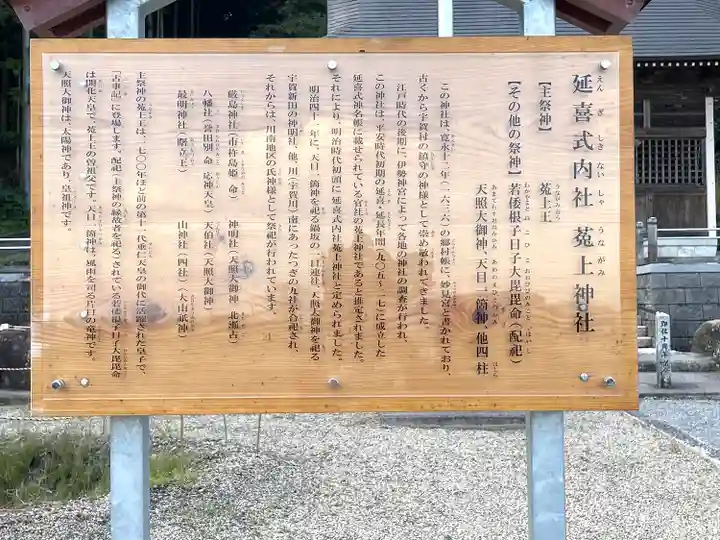 延喜式内社 菟上神社
えんぎしきないしゃ うながみ
【主祭神】
菟上王
【その他の祭神】
若倭根子日子大毘毘命（配祀）
天照大御神、天目一箇神、他四柱
この神社は、寛永十三年（一六三六）の郷村帳に、妙見宮と書かれており、
古くから宇賀村の鎮守の神様として崇め敬われてきました。
江戸時代の後期に、伊勢神宮によって各地の神社の調査が行われ、
この神社は、平安時代初期の延喜・延長年間（九〇五～二七）に成立した
延喜式神名帳に載せられている官社の菟上神社であると推定されました。
それにより、明治時代初頭に「延喜式内社菟上神社」と定められました。
明治四十一年に、天目一箇神を祀る鍋坂の一目連社、天照大御神を祀る
宇賀新田の神明社、他、川（宇賀川）南にあったつぎの九社が合祀され、
それからは、川南地区の氏神様として祭祀が行われています。
厳島神社（市杵島姫命） 神明社（天照大御神 北瀬古）
八幡社（誉田別命 応神天皇） 天伯社（天照大御神）
最明神社（際立王） 山神社（四社）（大山祇神）
主祭神の菟上王は、一七〇〇年ほど前の第十一代垂仁天皇の御代に活躍された皇子で、
「古事記」に登場します。配祀（主祭神の縁故者を祀る）されている若倭根子日子大毘毘命
は開化天皇で、菟上王の曽祖父です。天目一箇神は、風雨を司る片目の竜神です。
天照大御神は、太陽神であり、皇祖神です。